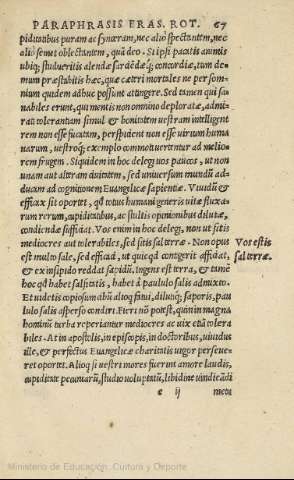 PARAPHRASIS ERAS. ROT. 67
piditatibus puram ac synceram, nec alio spectantem, nec
alio semet oblectantem, quàm deo. Si ipsi pacatis animis
ubiq; studueritis alendæ sarciendæq; concordiæ, tum de-
mum præstabitis hæc, quæ cæteri mortales ne per som-
nium quidem adhuc possunt attingere. Sed tamen qui sa-
nabiles erunt, qui mentis non omnino deploratæ, admi-
rati tolerantiam simul & bonitatem uestram intelligent
rem non esse fucatam, perspicient non esse uirum humana
narum, uestroq; exemplo commouebuntur ad melio-
rem frugem. Siquidem in hoc delegi uos paucos, ut non
unam aut alteram ciuitatem, sed uniuersum mundum ad-
ducam ad cognitionem Euangelicæ sapientiæ. Viuidum &
efficax sit oportet, qd totius humani generis uitæ fluxa-
rum rerum, cupiditatibus, ac stultis opinionibus dilutæ,
condiendæ sufficiat. Vos enim in hoc delegi, non ut sitis
mediocres aut tolerabiles, sed sitis sal terræ. Non opus
est multo sale, sed efficaci, ut quicqd contigerit afficiat,
& ex insipido reddat sapidum. Ingens est terra, & tamen
hoc qd habet salsitatis, habet à paululo salis admixto.
Et uidetis copiosum cibum alioq fatui, diluiq; saporis, pau
lulo salis asperso condiri. Fieri non potest, quin in magna
hominum turba reperiantur mediocres ac uix etiam tolera
biles. At in apostolis, in episcopis, in doctoribus, uiuidus
ille, & perfectus Euangelicæ charitatis uigor perseue-
ret oportet. Alioqui si uestri mores fuerint amore laudis,
cupiditate pecuniarum, studio uoluptatum, libidine uindicandi
e ij metu
Vos estis
sal terræ.
Ministerio de Educación, Cultura y Deporte